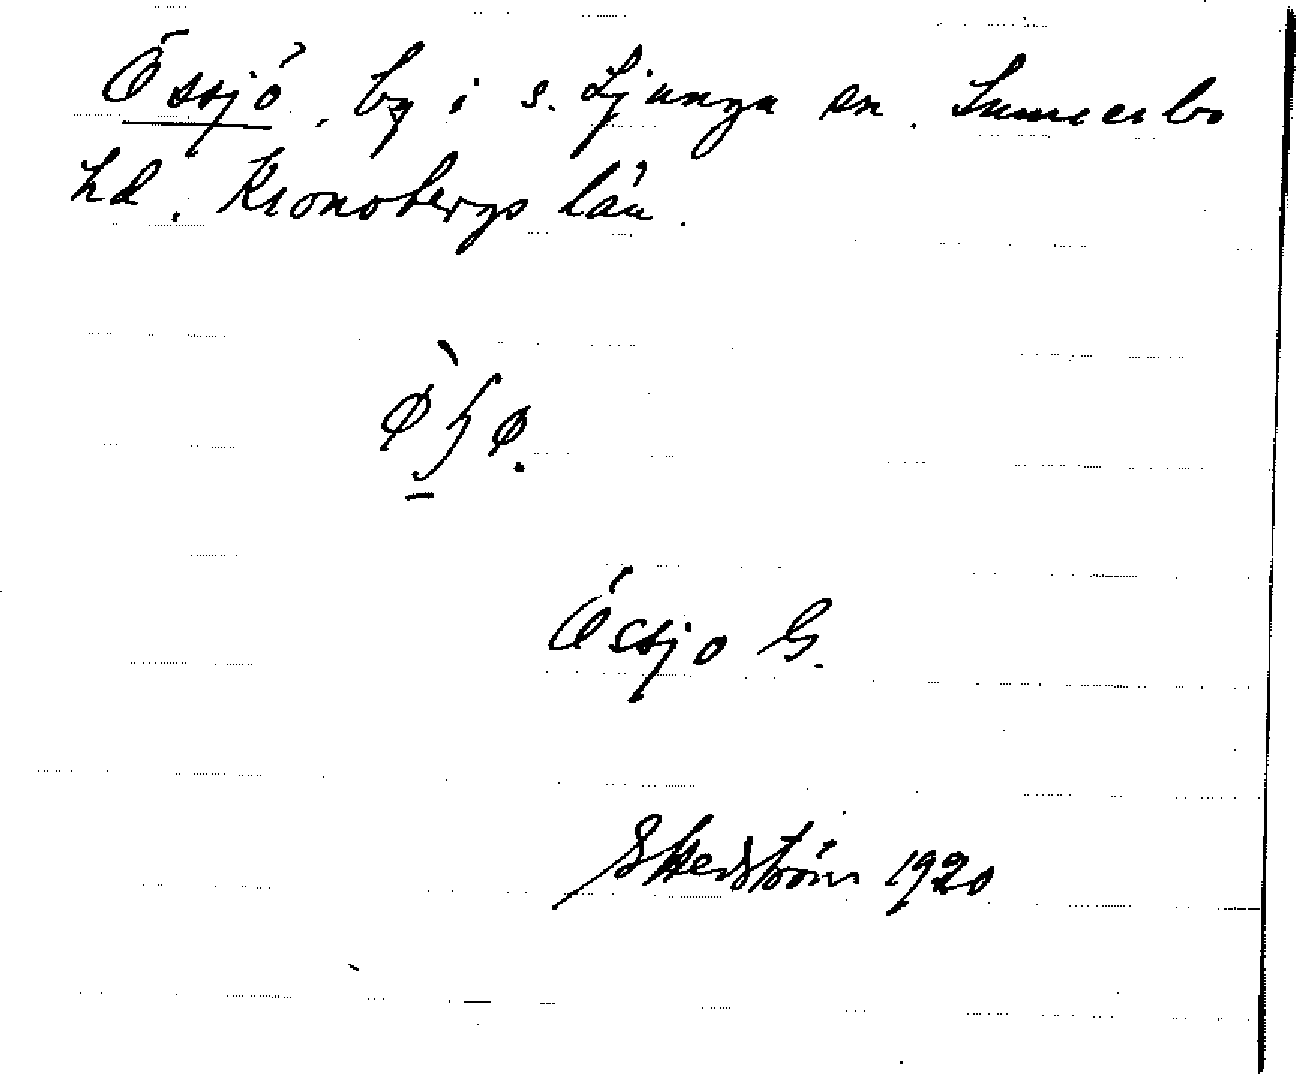 Össjö, by i s. Ljunga sn. Sunnerbo
hd, Kronobergs län.
Össjö G.
G Hedström 1920